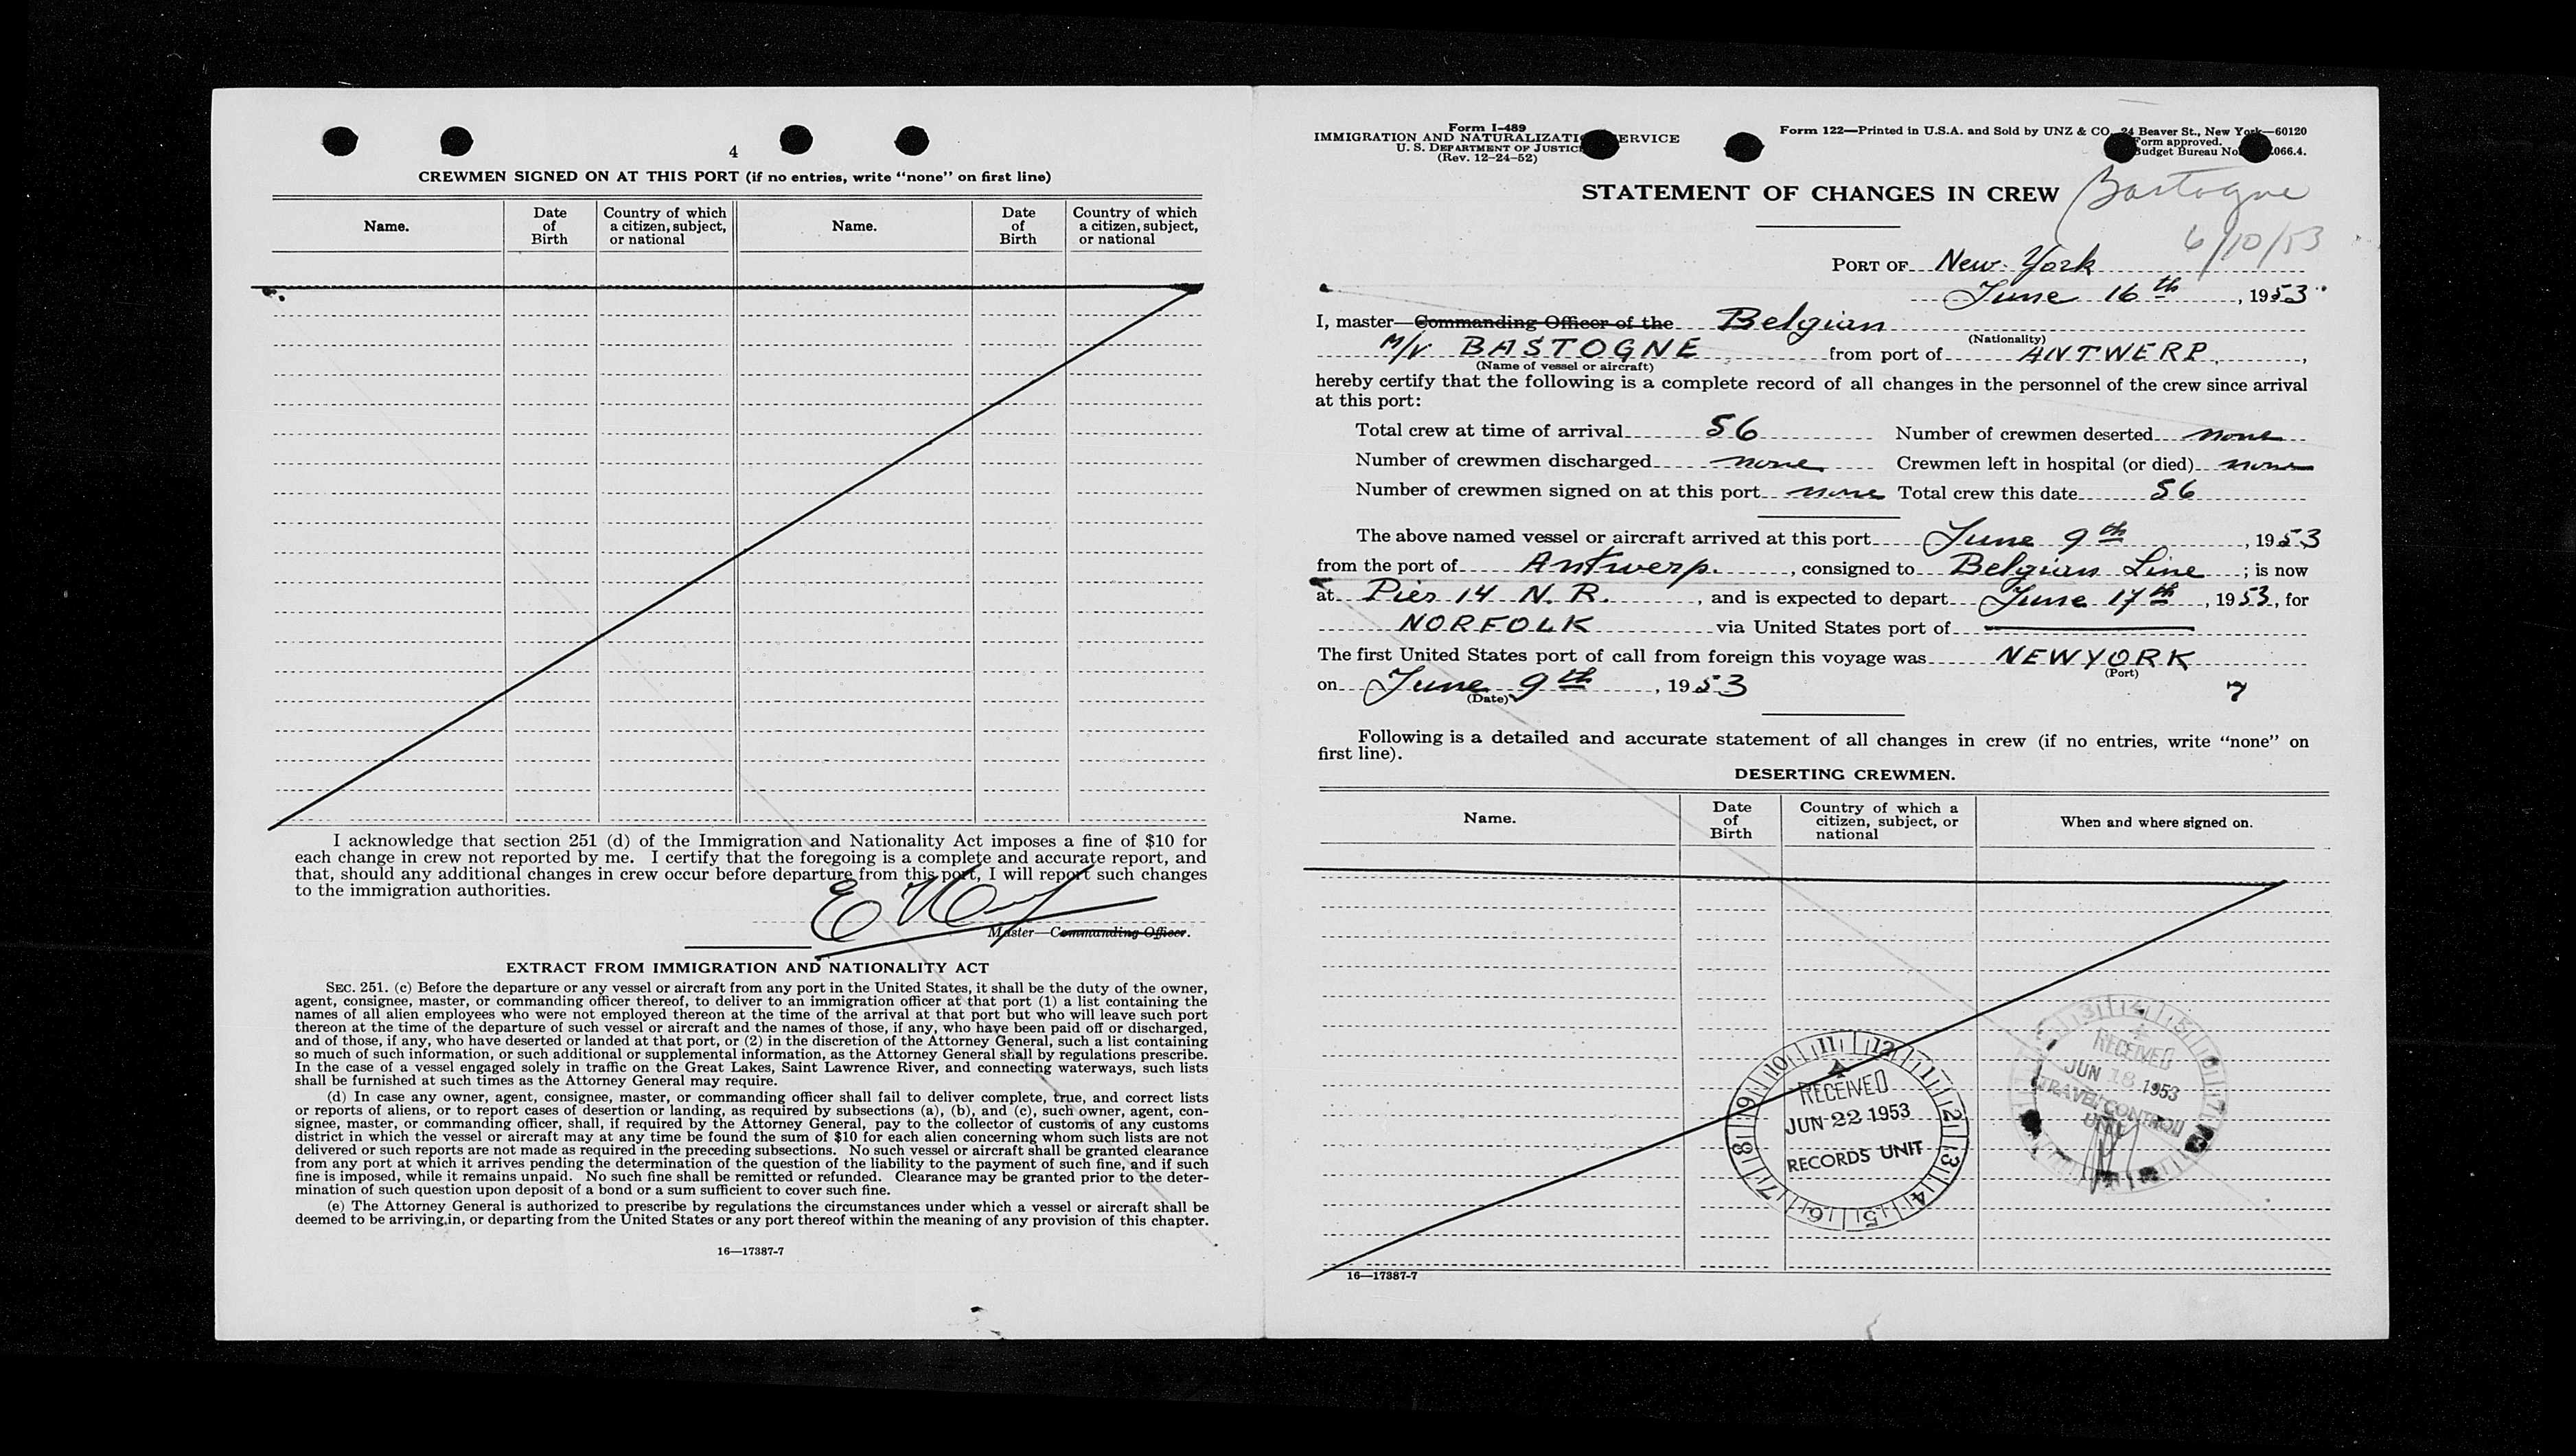 4
CREWMEN SIGNED ON AT THIS PORT (if no entries, write “none” on first line)
Name. Date of Birth Country of which a citizen, subject, or national Name. Date of Birth Country of which a citizen, subject, or national
I acknowledge that section 251 (d) of the Immigration and Nationality Act imposes a fine of $10 for
each change in crew not reported by me. I certify that the foregoing is a complete and accurate report, and
that, should any additional changes in crew occur before departure from this port, I will report such changes
to the immigration authorities.
Master—Commanding Officer.
EXTRACT FROM IMMIGRATION AND NATIONALITY ACT
SEC. 251. (c) Before the departure or any vessel or aircraft from any port in the United States, it shall be the duty of the owner,
agent, consignee, master, or commanding officer thereof, to deliver to an immigration officer at that port (1) a list containing the
names of all alien employees who were not employed thereon at the time of the arrival at that port but who will leave such port
thereon at the time of the departure of such vessel or aircraft and the names of those, if any, who have been paid off or discharged,
and of those, if any, who have deserted or landed at that port, or (2) in the discretion of the Attorney General, such a list containing
so much of such information, or such additional or supplemental information, as the Attorney General shall by regulations prescribe.
In the case of a vessel engaged solely in traffic on the Great Lakes, Saint Lawrence River, and connecting waterways, such lists
shall be furnished at such times as the Attorney General may require.
(d) In case any owner, agent, consignee, master, or commanding officer shall fail to deliver complete, true, and correct lists
or reports of aliens, or to report cases of desertion or landing, as required by subsections (a), (b), and (c), such owner, agent, con-
signee, master, or commanding officer, shall, if required by the Attorney General, pay to the collector of customs of any customs
district in which the vessel or aircraft may at any time be found the sum of $10 for each alien concerning whom such lists are not
delivered or such reports are not made as required in the preceding subsections. No such vessel or aircraft shall be granted clearance
from any port at which it arrives pending the determination of the question of the liability to the payment of such fine, and if such
fine is imposed, while it remains unpaid. No such fine shall be remitted or refunded. Clearance may be granted prior to the deter-
mination of such question upon deposit of a bond or a sum sufficient to cover such fine.
(e) The Attorney General is authorized to prescribe by regulations the circumstances under which a vessel or aircraft shall be
deemed to be arriving in, or departing from the United States or any port thereof within the meaning of any provision of this chapter.
16—17387-7
Form I-489
IMMIGRATION AND NATURALIZATI ERVICE
U. S. DEPARTMENT OF JUSTIC
(Rev. 12-24-52)
Form 122—Printed in U.S.A. and Sold by UNZ & CO., 24 Beaver St., New York—60120
Form approved.
Budget Bureau No. 066.4.
STATEMENT OF CHANGES IN CREW Bastogne
6/10/53
PORT OF New York
June 16th, 1953
I, master—Commanding Officer of the Belgian
(Nationality)
M/V BASTOGNE from port of ANTWERP,
(Name of vessel or aircraft)
hereby certify that the following is a complete record of all changes in the personnel of the crew since arrival
at this port:
Total crew at time of arrival 56 Number of crewmen deserted none
Number of crewmen discharged none Crewmen left in hospital (or died) none
Number of crewmen signed on at this port none Total crew this date 56
The above named vessel or aircraft arrived at this port June 9th, 1953
from the port of Antwerp., consigned to Belgian Line; is now
at Pier 14 N. R., and is expected to depart June 17th, 1953, for
NORFOLK via United States port of
The first United States port of call from foreign this voyage was NEWYORK
(Port)
on June 9th, 1953
(Date)
7
Following is a detailed and accurate statement of all changes in crew (if no entries, write “none” on
first line).
DESERTING CREWMEN.
Name. Date of Birth Country of which a citizen, subject, or national When and where signed on.
11 12 1 2 3 4 5 6 7 8 9 10
RECEIVED
JUN 22 1953
RECORDS UNIT
RECEIVED
JUN 18 1953
TRAVEL CONTROL
UNIT
16—17387-7